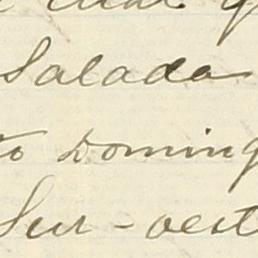 Salada
to Doming
Sur-oest